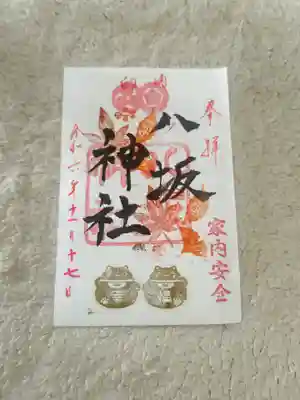 奉拝
八坂
神社
家内安全
令和六年十一月十七日